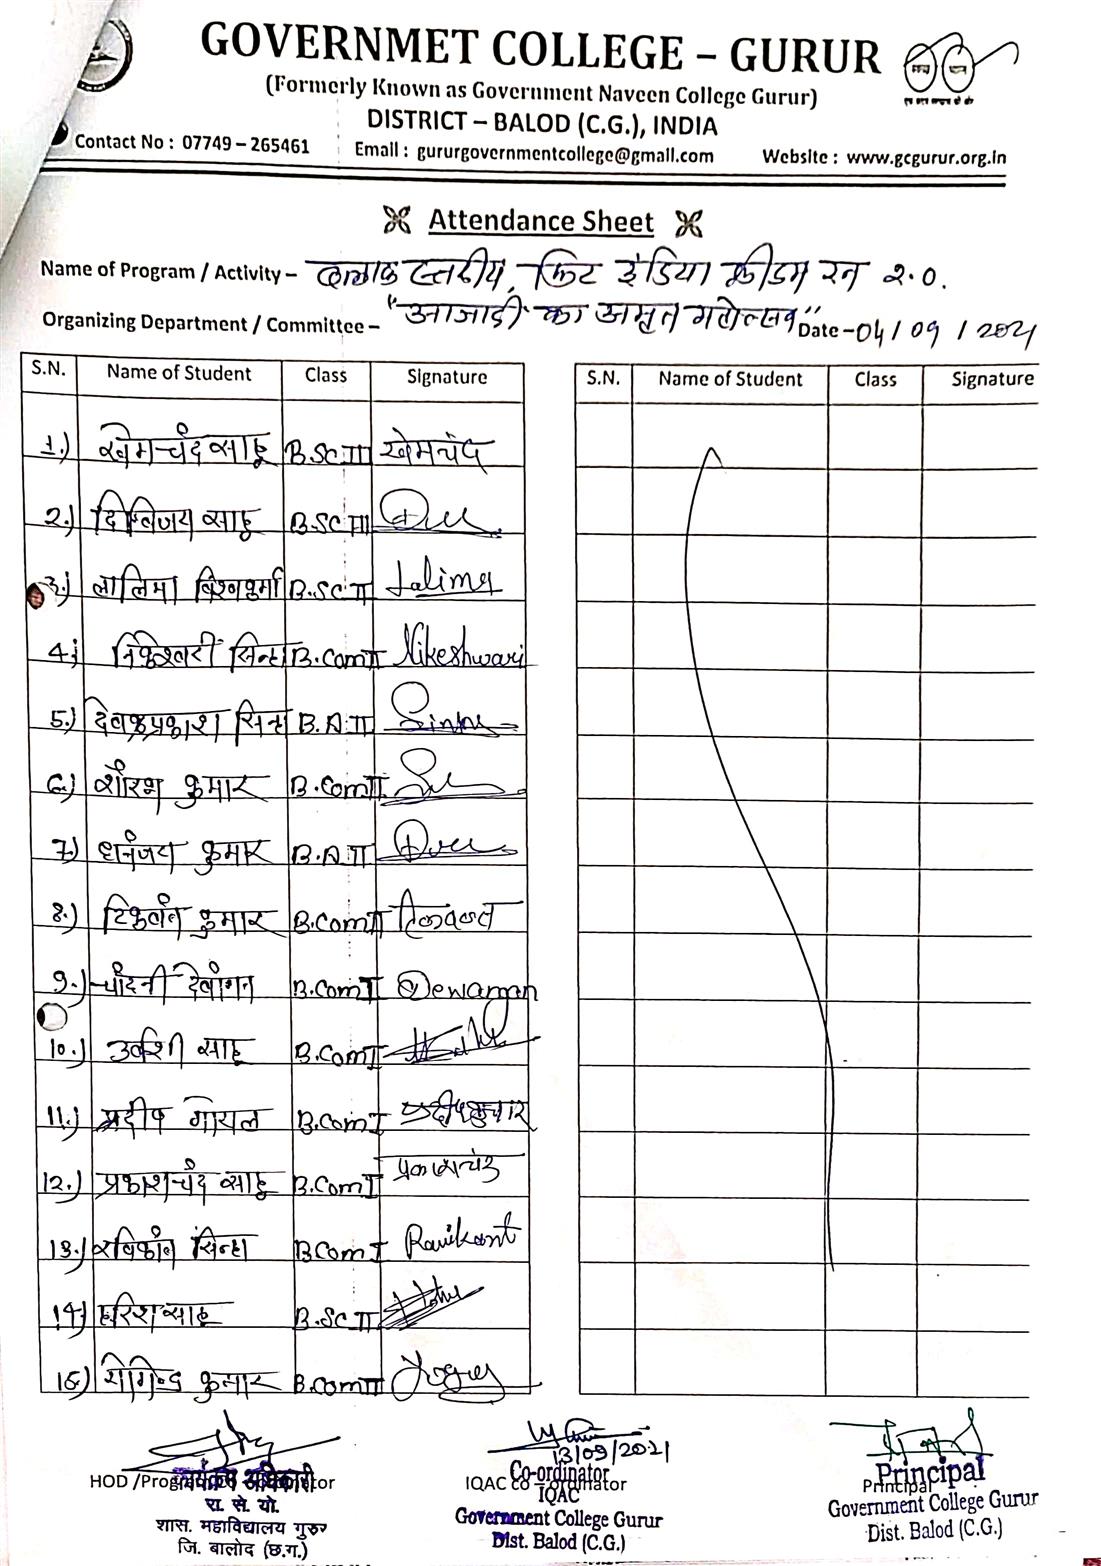 GOVERNMET COLLEGE – GURUR
(Formerly Known as Government Naveen College Gurur)
DISTRICT – BALOD (C.G.), INDIA
Contact No : 07749 – 265461 Email : gururgovernmentcollege@gmail.com Website : www.gcgurur.org.in
Attendance Sheet
Name of Program / Activity – ब्लाक स्तरीय, फिट इंडिया फ्रीडम रन २.०.
Organizing Department / Committee – "आजादी का अमृत महोत्सव" Date – 04 / 09 / 2021
S.N. Name of Student Class Signature
1.) खेमचंद साहू B.SC III खेमचंद
2.) दिग्विजय साहू B.SC III
3.) लालिमा विश्वकर्मा B.SC II Lalima
4.) निकेश्वरी सिन्हा B.Com II Nikeshwari
5.) देवकप्रकाश सिन्हा B.A II Sinha
6.) शौरभ कुमार B.Com II
7.) धनंजय कुमार B.A II
8.) टिकवंत कुमार B.Com II टिकवंत
9.) चांदनी देवांगन B.Com I Dewangan
10.) उर्वशी साहू B.Com I
11.) प्रदीप गोयल B.Com I प्रदीप कुमार
12.) प्रकाशचंद साहू B.Com I प्रकाशचंद
13.) रविकांत सिन्हा B.Com I Ravikant
14) हरिश साहू B.SC II
15) योगेन्द्र कुमार B.Com III
S.N. Name of Student Class Signature
HOD /Program
कार्यक्रम अधिकारी
रा. से. यो.
शास. महाविद्यालय गुरुर
जि. बालोद (छ.ग.)
13/09/2021
Co-ordinator
IQAC Co – ordinator
IQAC
Government College Gurur
Dist. Balod (C.G.)
Principal
Principal
Government College Gurur
Dist. Balod (C.G.)